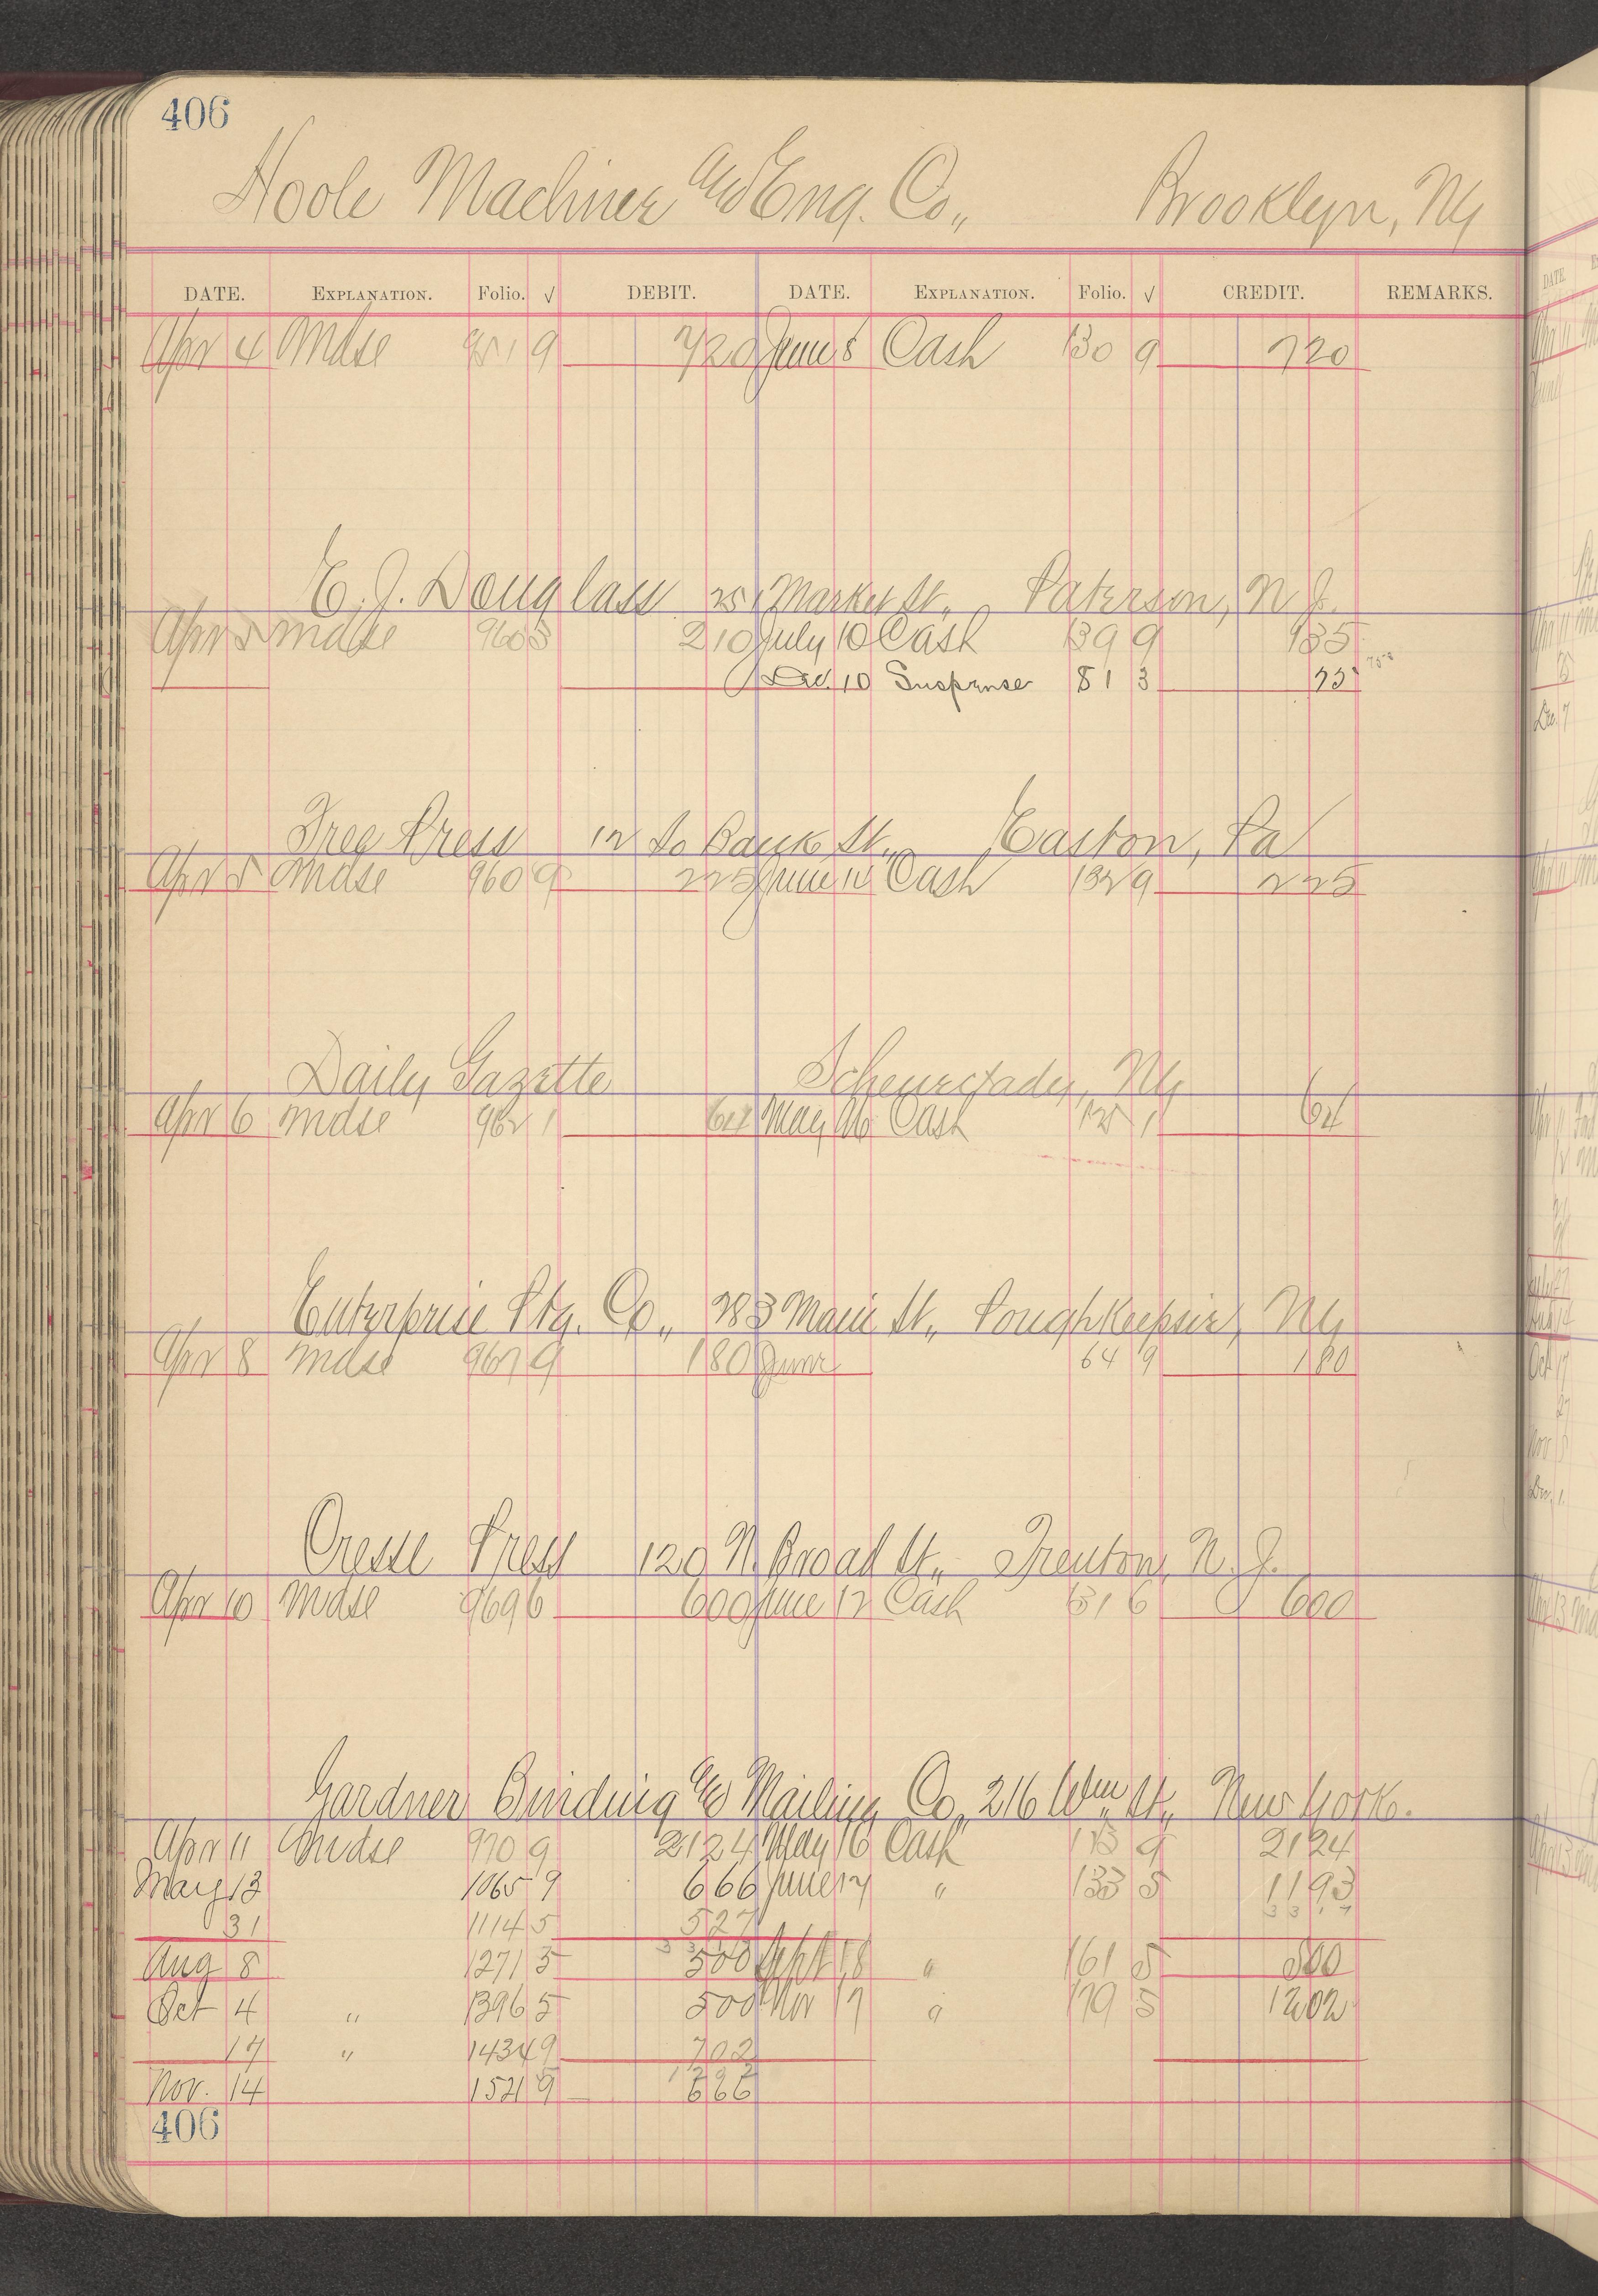 406
Hoole Machine and Eng. Co., Brooklyn, Ny
DATE. EXPLANATION. Folio. √ DEBIT. DATE. EXPLANATION. Folio. √ CREDIT. REMARKS.
Apr 4 Mdse 9 720 June Cash 130 9 720
E. J. Douglass Market St., Paterson, N. J.
Apr 5 Mdse 960 3 210 July 10 Cash 139 9 135
Dec. 10 Suspense 81 3 75
Free Press Bank St., Easton, Pa
Apr 5 Mdse 960 9 225 June Cash 132 9 225
Daily Gazette Schenectady, Ny
Apr 6 Mdse 962 1 64 May 26 Cash 1 64
Enterprise Ptg. Co., 283 Main St., Poughkeepsie, Ny
Apr 8 Mdse 967 9 180 June 64 9 180
Cresse Press 120 N. Broad St., Trenton, N. J.
Apr 10 Mdse 969 6 600 June 12 Cash 131 6 600
Gardner Binding and Mailing Co., 216 Wm St., New York.
Apr 11 Mdse 970 9 2124 May 16 Cash 9 2124
May 13 1065 9 666 June 17 " 133 5 1193
31 1114 5 527 3317
Aug 8 1271 5 500 Sept 18 " 161 5 500
Oct 4 " 1396 5 500 Nov 17 " 179 5 1202
17 " 1434 9 702
Nov. 14 1521 9 666
406